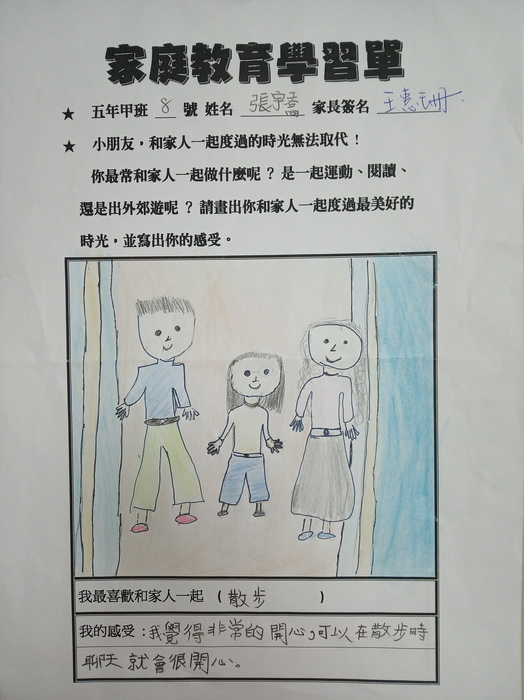 家庭教育學習單
★ 五年甲班 8 號 姓名 張宇孟 家長簽名 王惠珊
★ 小朋友，和家人一起度過的時光無法取代！
你最常和家人一起做什麼呢？是一起運動、閱讀、
還是出外郊遊呢？請畫出你和家人一起度過最美好的
時光，並寫出你的感受。
我最喜歡和家人一起（散步）
我的感受：我覺得非常的開心，可以在散步時
聊天就會很開心。